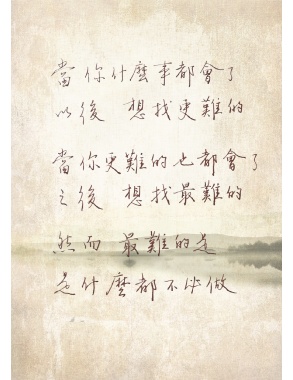 當你什麼事都會了
以後 想找更難的
當你更難的也都會了
之後 想找最難的
然而 最難的是
是什麼都不必做